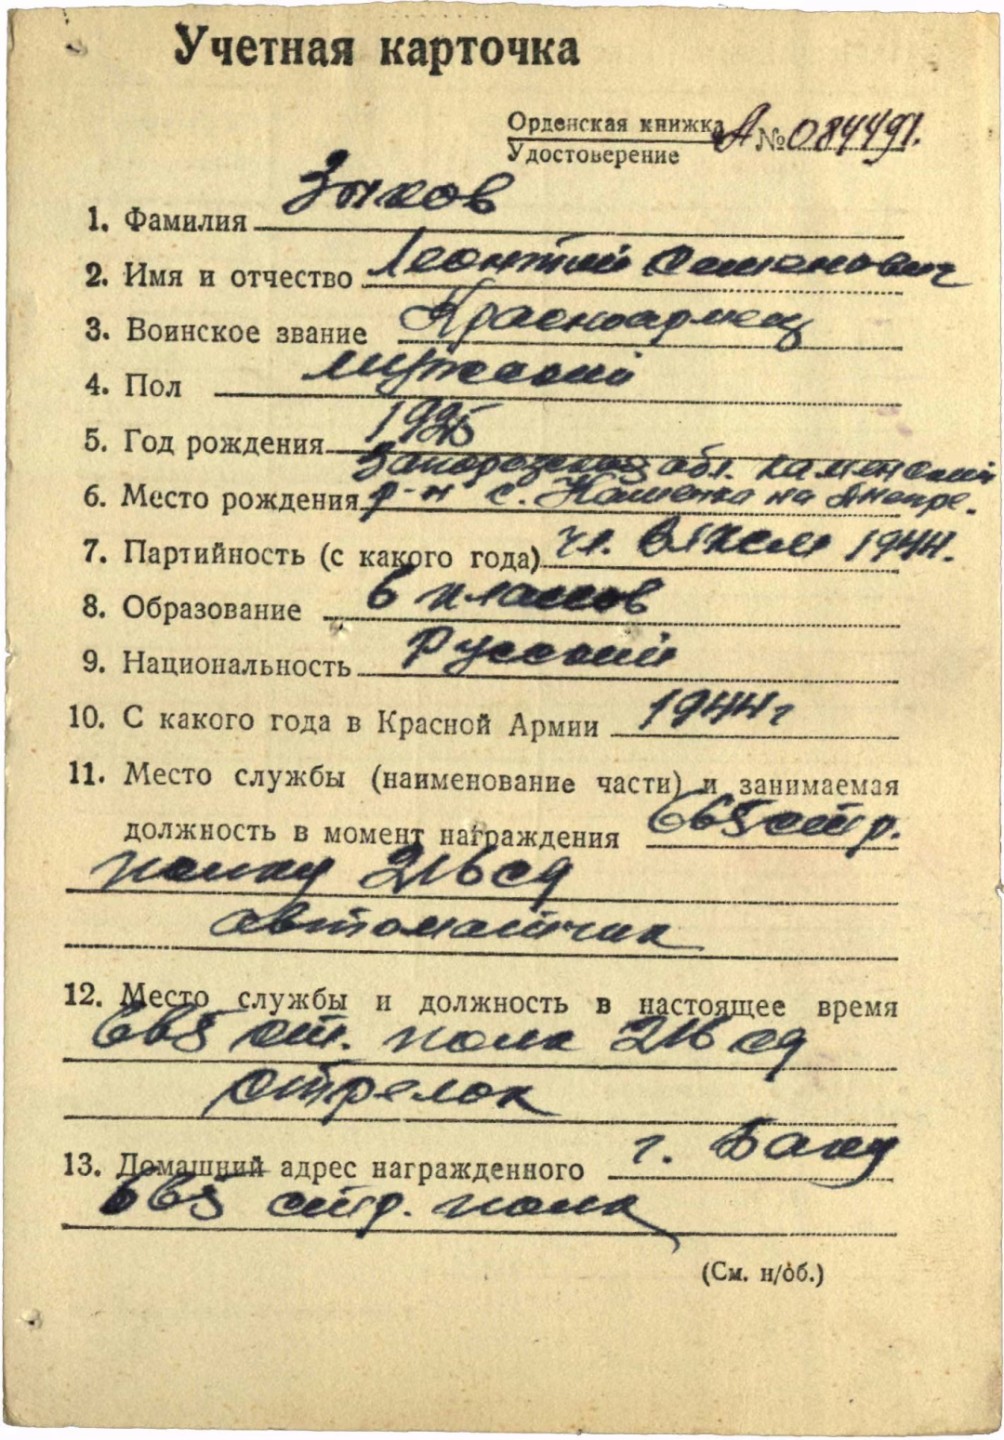 Учетная карточка
Орденская книжка А № 084491.
Удостоверение
1. Фамилия Зыков
2. Имя и отчество Леонтий Семенович
3. Воинское звание Красноармец
4. Пол мужской
5. Год рождения 1925
Запорожская обл. Каменский
6. Место рождения р-н с. Каменка на Днепре.
7. Партийность (с какого года) чл. ВЛКСМ 1944.
8. Образование 6 классов
9. Национальность Русский
10. С какого года в Красной Армии 1944 г
11. Место службы (наименование части) и занимаемая
должность в момент награждения 665 стр.
полку 216 сд
автоматчик
12. Место службы и должность в настоящее время
665 ст. полк 216 сд
стрелок
13. Домашний адрес награжденного г. Баку
665 стр. полк
(См. н/об.)